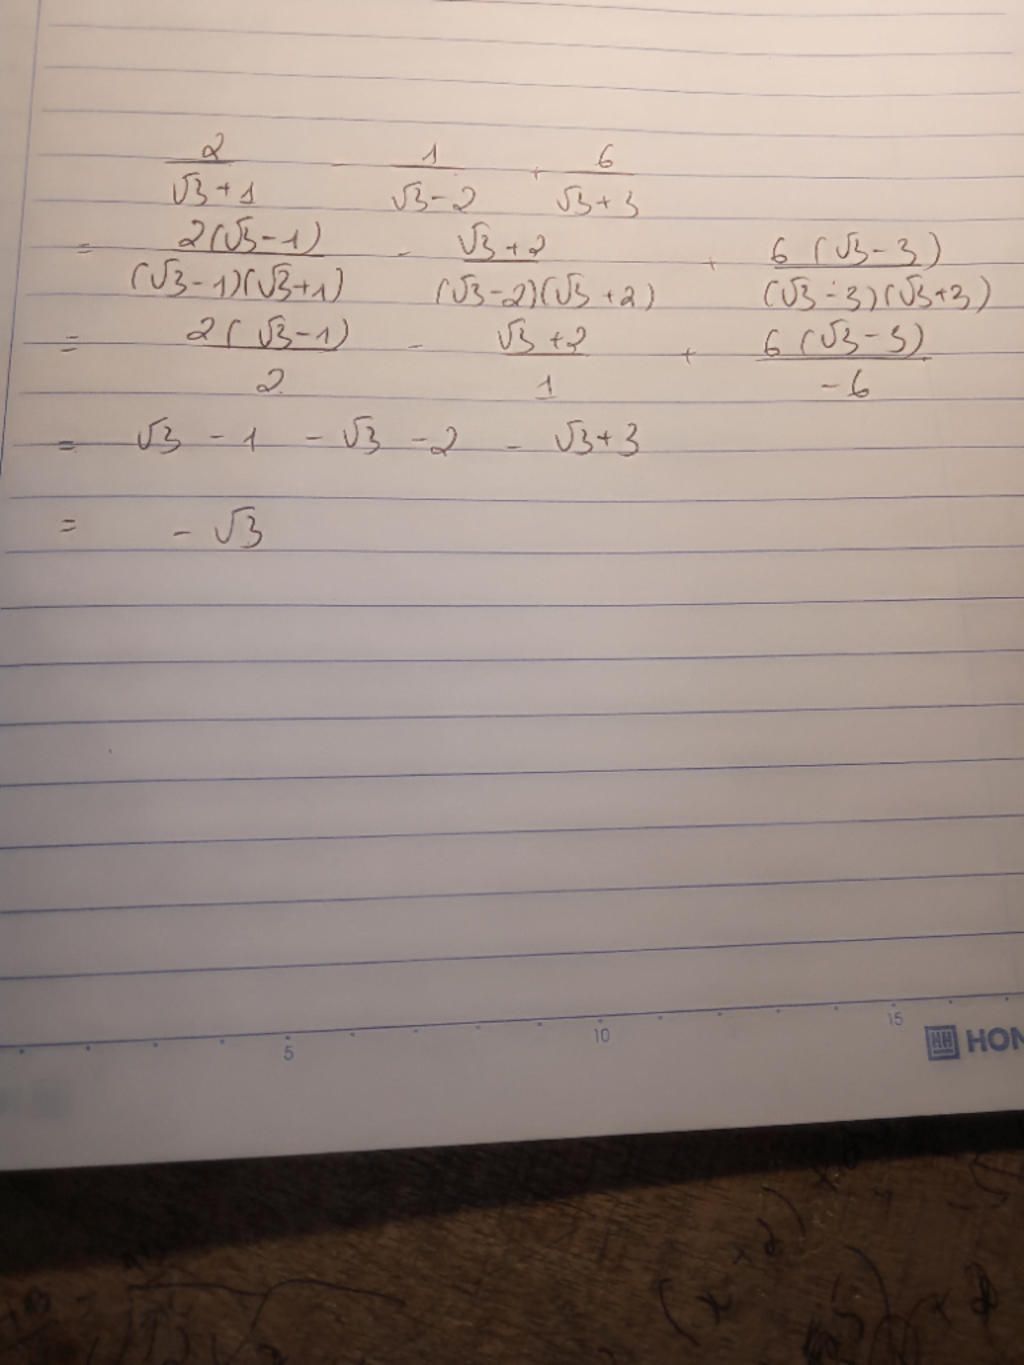 2/(√3+1) - 1/(√3-2) + 6/(√3+3)
= 2(√3-1)/((√3-1)(√3+1)) - (√3+2)/((√3-2)(√3+2)) + 6(√3-3)/((√3-3)(√3+3))
= 2(√3-1)/2 - (√3+2)/1 + 6(√3-3)/-6
= √3 - 1 - √3 - 2 - √3+3
= - √3
5 10 15
HON